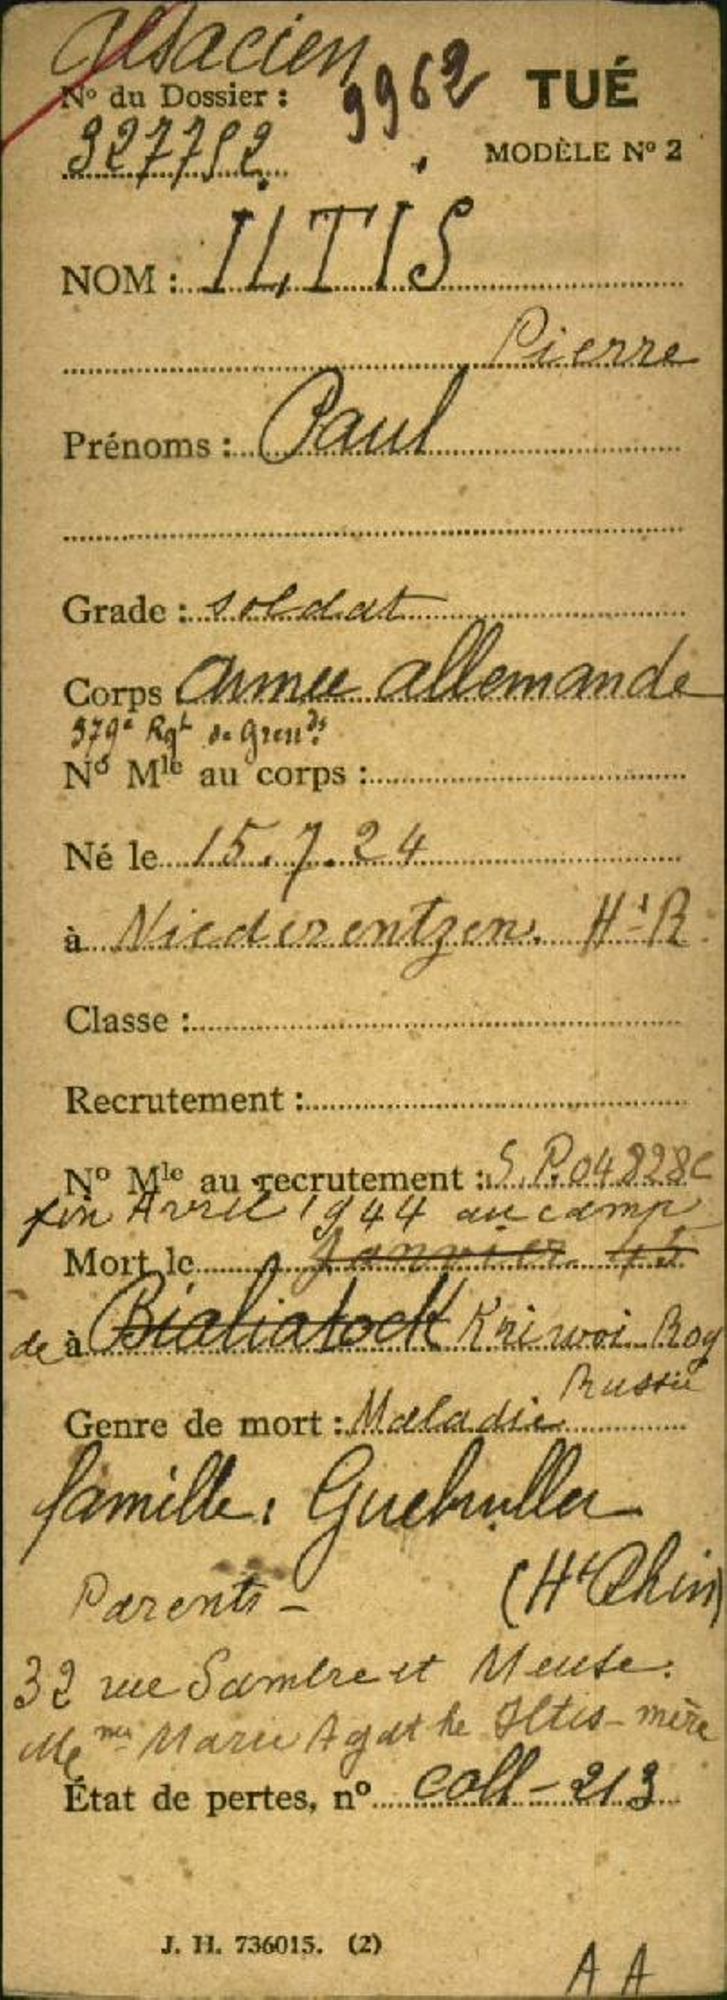 Alsacien
9962
TUÉ
N° du Dossier :
327752
MODÈLE N° 2
NOM : ILTIS
Pierre
Prénoms : Paul
Grade : soldat
Corps Armée allemande
379e Rgt de Grend.
N° Mle au corps :
Né le 15.7.24
à Niederentzen. Ht R
Classe :
Recrutement :
N° Mle au recrutement : S.P.04828C
fin Avril 1944 au camp
Mort le Janvier 45
de à Bialiatock Kriwoi Rog
Russie
Genre de mort : Maladie
famille : Guebwiller
Parents - (Ht Rhin)
32 rue Sambre et Meuse.
Mme Marie Agathe Iltis - mère
État de pertes, n° coll - 213
J. H. 736015. (2)
A A